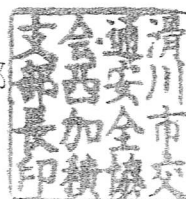 滑川市交
通安全協
会西加積
支部長印